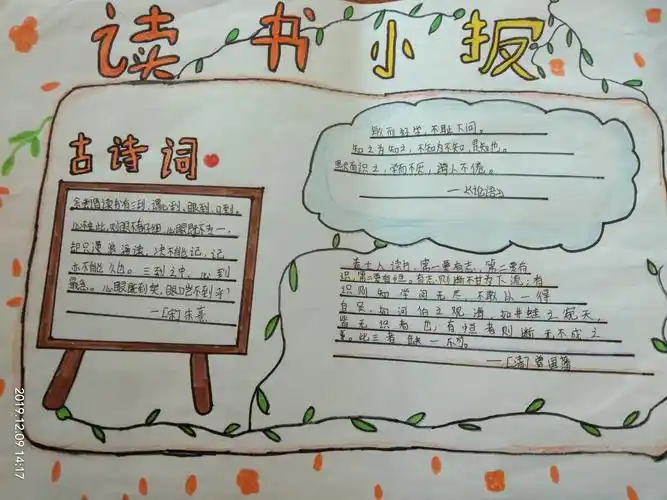 读书小报
古诗词
余尝谓读书有三到,谓心到、眼到、口到。
心不在此,则眼不看仔细,心眼既不专一,
却只漫浪诵读,决不能记,记
亦不能久也。三到之中,心到
最急。心既到矣,眼口岂不到乎?
—[宋]朱熹
敏而好学,不耻下问。
知之为知之,不知为不知,是知也。
默而识之,学而不厌,诲人不倦。
—《论语》
盖士人读书,第一要有志,第二要有
识,第三要有恒。有志,则断不甘为下流;有
识则知学问无尽,不敢以一得
自足,如河伯之观海,如井蛙之窥天,
皆无识者也;有恒者则断无不成之
事。此三者缺一不可。
—[清]曾国藩
2019.12.09 14:17